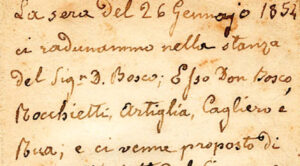 La sera del 26 Gennajo 1854
ci radunammo nella stanza
del Sigr D. Bosco; Esso Don Bosco,
Rocchietti, Artiglia, Cagliero e
Rua; e ci venne proposto di